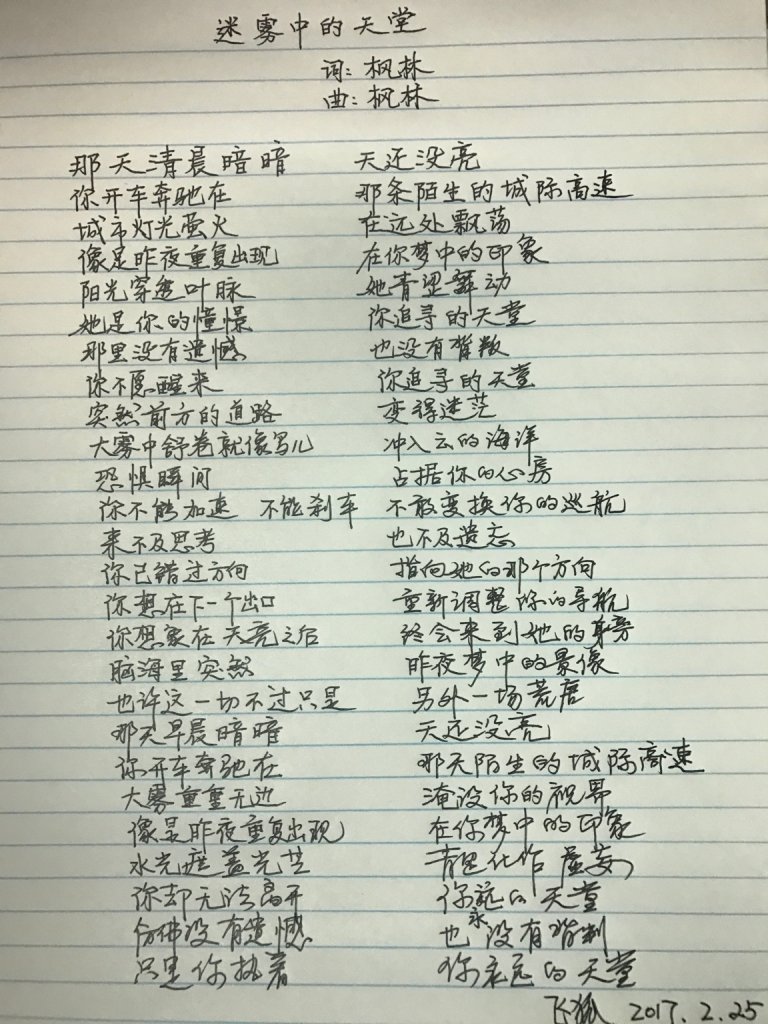 迷雾中的天堂
词：枫林
曲：枫林
那天清晨暗暗 天还没亮
你开车奔驰在 那条陌生的城际高速
城市灯光萤火 在远处飘荡
像是昨夜重复出现 在你梦中的印象
阳光穿透叶脉 她青涩舞动
她是你的憧憬 你追寻的天堂
那里没有遗憾 也没有背叛
你不愿醒来 你追寻的天堂
突然前方的道路 变得迷茫
大雾中舒卷就像写儿 冲入云的海洋
恐惧瞬间 占据你的心房
你不能加速 不能刹车 不敢变换你的巡航
来不及思考 也不及遗忘
你已错过方向 指向她的那个方向
你想在下一个出口 重新调整你的导航
你想象在天亮之后 终会来到她的身旁
脑海里突然 昨夜梦中的景像
也许这一切不过只是 另外一场荒唐
那天早晨暗暗 天还没亮
你开车奔驰在 那天陌生的城际高速
大雾重重无边 淹没你的视界
像是昨夜重复出现 在你梦中的印象
水光 盖光芒 青 化作虚妄
你却无法离开 你永远的天堂
仿佛没有遗憾 也没有背叛
只是你执着 你永远的天堂
飞狐 2017.2.25